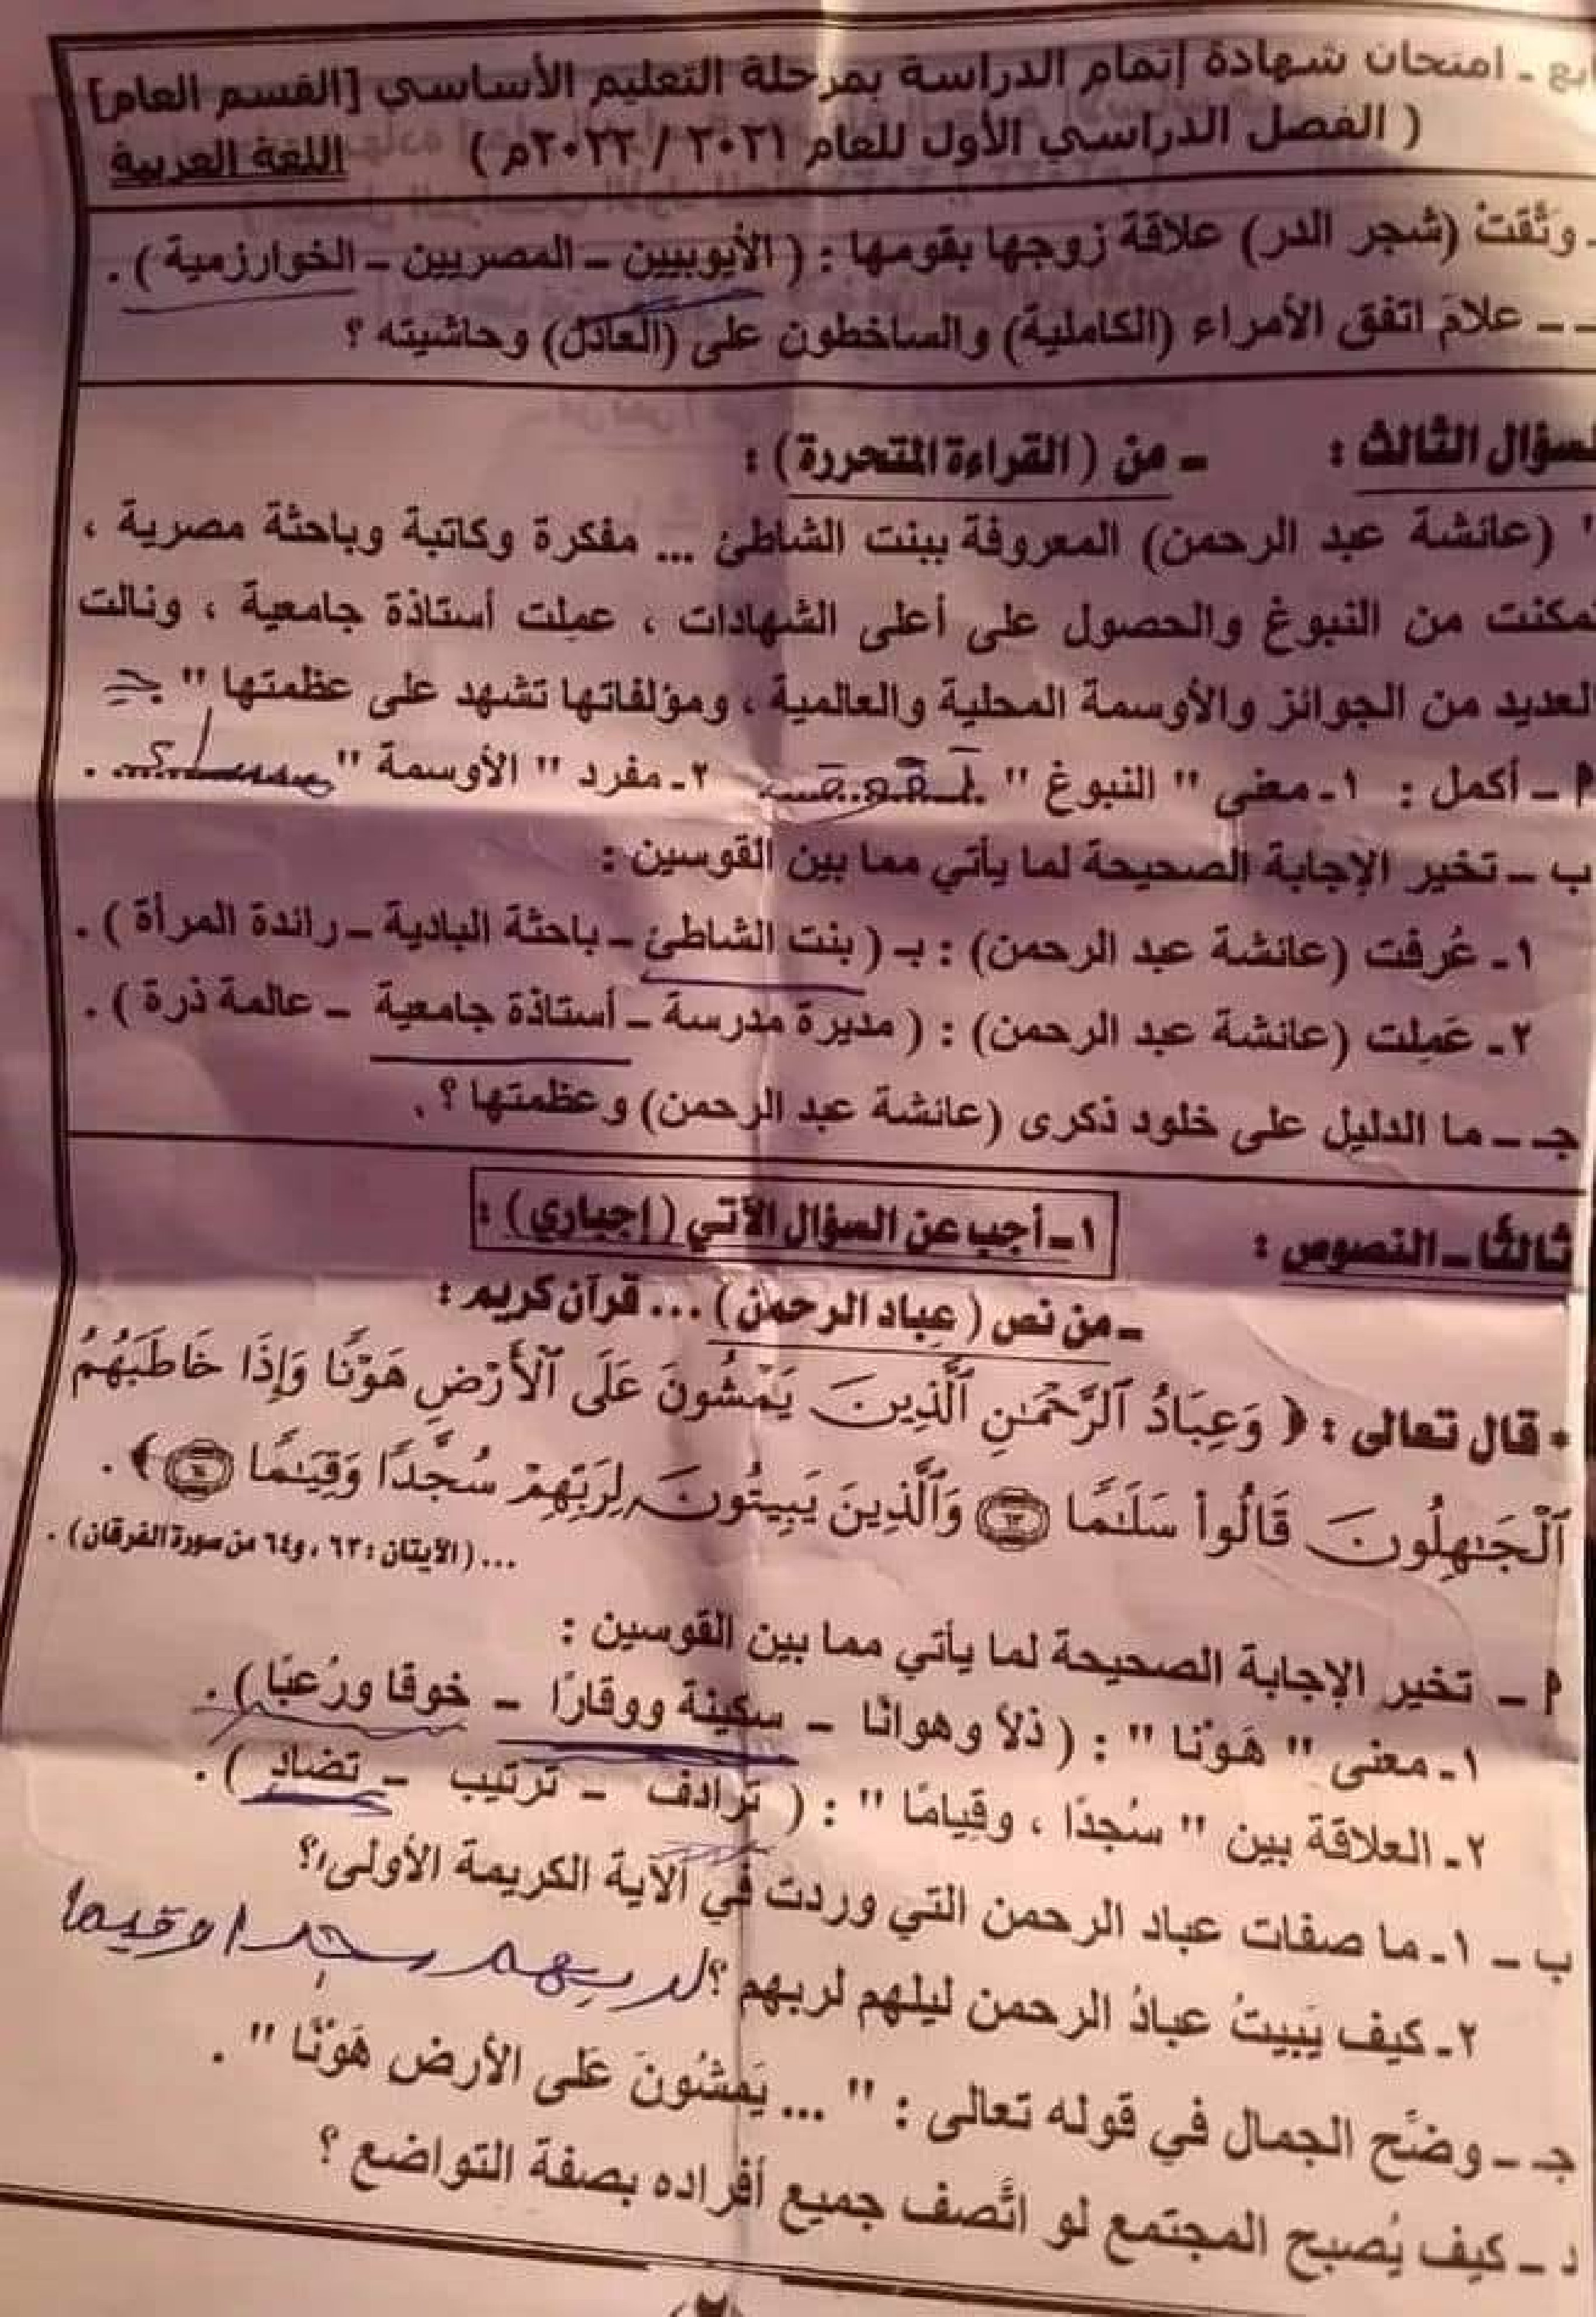 امتحان شهادة إتمام الدراسة بمرحلة التعليم الأساسي [القسم العام]
( الفصل الدراسي الأول للعام ٢٠٢١ / ٢٠٢٢م ) اللغة العربية
وَثَّقَتْ (شجر الدر) علاقة زوجها بقومها : ( الأيوبيين - المصريين - الخوارزمية ) .
- علامَ اتفق الأمراء (الكاملية) والساخطون على (العادل) وحاشيته ؟
السؤال الثالث : - من ( القراءة المتحررة ) :
" (عائشة عبد الرحمن) المعروفة ببنت الشاطئ ... مفكرة وكاتبة وباحثة مصرية ،
تمكنت من النبوغ والحصول على أعلى الشهادات ، عملت أستاذة جامعية ، ونالت
العديد من الجوائز والأوسمة المحلية والعالمية ، ومؤلفاتها تشهد على عظمتها "
أ - أكمل : ١- معنى " النبوغ " ٢- مفرد " الأوسمة " .
ب - تخير الإجابة الصحيحة لما يأتي مما بين القوسين :
١- عُرفت (عائشة عبد الرحمن) : بـ ( بنت الشاطئ - باحثة البادية - رائدة المرأة ) .
٢- عَمِلت (عائشة عبد الرحمن) : ( مديرة مدرسة - أستاذة جامعية - عالمة ذرة ) .
جـ - ما الدليل على خلود ذكرى (عائشة عبد الرحمن) وعظمتها ؟ .
ثالثًا - النصوص : ١- أجب عن السؤال الآتي ( إجباري ) :
- من نص ( عباد الرحمن ) ... قرآن كريم :
* قال تعالى : ﴿ وَعِبَادُ ٱلرَّحْمَـٰنِ ٱلَّذِينَ يَمْشُونَ عَلَى ٱلْأَرْضِ هَوْنًا وَإِذَا خَاطَبَهُمُ
ٱلْجَـٰهِلُونَ قَالُوا۟ سَلَـٰمًا ٦٣ وَٱلَّذِينَ يَبِيتُونَ لِرَبِّهِمْ سُجَّدًا وَقِيَـٰمًا ٦٤ ﴾ .
... ( الآيتان : ٦٣ ، و٦٤ من سورة الفرقان ) .
أ - تخير الإجابة الصحيحة لما يأتي مما بين القوسين :
١- معنى " هَوْنًا " : ( ذلاً وهوانًا - سكينة ووقارًا - خوفًا ورُعبًا ) .
٢- العلاقة بين " سُجدًا ، وقِيامًا " : ( ترادف - ترتيب - تضاد ) .
ب - ١- ما صفات عباد الرحمن التي وردت في الآية الكريمة الأولى؟
٢- كيف يَبِيتُ عبادُ الرحمن ليلهم لربهم ؟ لربهم سجدا وقيما
جـ - وضِّح الجمال في قوله تعالى : " ... يَمشُونَ عَلى الأرض هَوْنًا " .
د - كيف يُصبح المجتمع لو اتَّصف جميع أفراده بصفة التواضع ؟